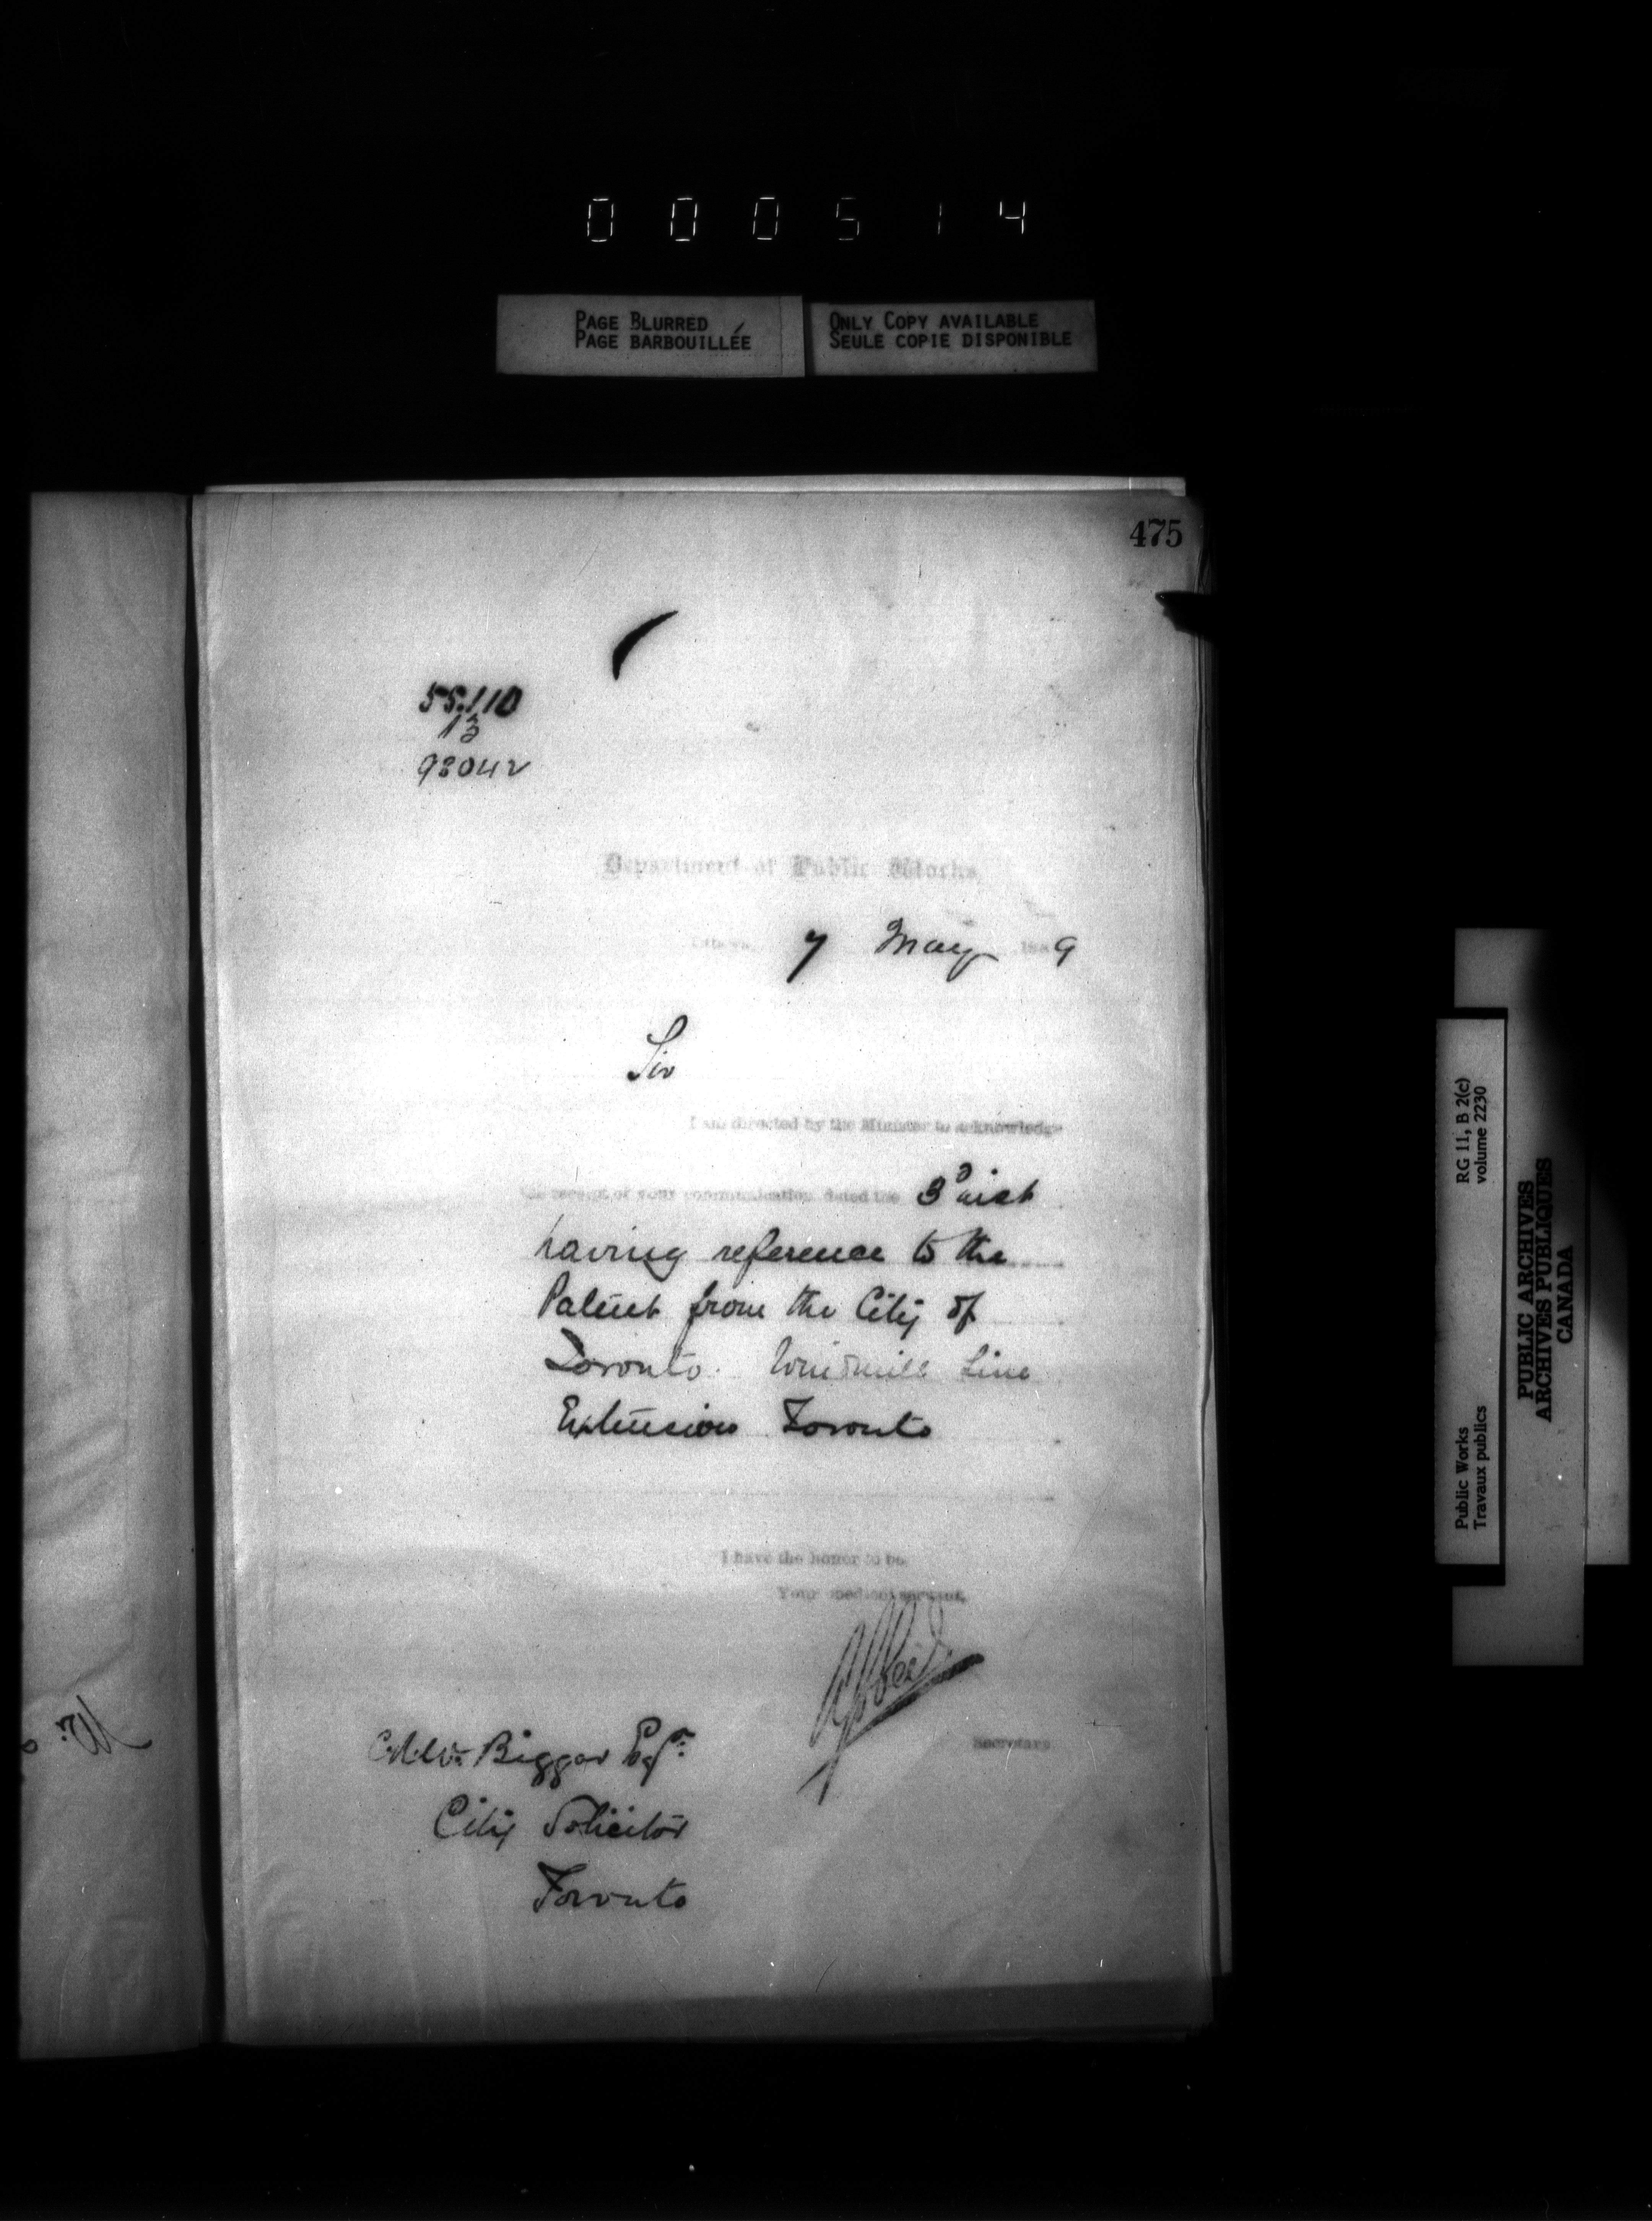 000514
PAGE BLURRED
PAGE BARBOUILLÉE
ONLY COPY AVAILABLE
SEULE COPIE DISPONIBLE
475
55.110
13
93042
Department of Public Works
Ottawa, 7 May 1889
Sir
I am directed by the Minister to acknowledge
the receipt of your communication dated the 3d inst
having reference to the
Patent from the City of
Toronto. Windmill Line
Extension Toronto
I have the honor to be
Your obedient servant,
Secretary
Biggar Esqr.
City Solicitor
Toronto
Public Works
Travaux publics
RG 11, B 2(c)
volume 2230
PUBLIC ARCHIVES
ARCHIVES PUBLIQUES
CANADA